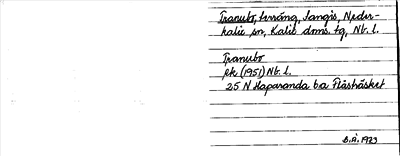 Tranubo, terräng, Sangis, Neder-
kalix sn, Kalix doms. tg, Nb. l.
Tranubo
ek (1951) Nb. l.
25 N Haparanda ba Flåshäsket
B.Å. 1973